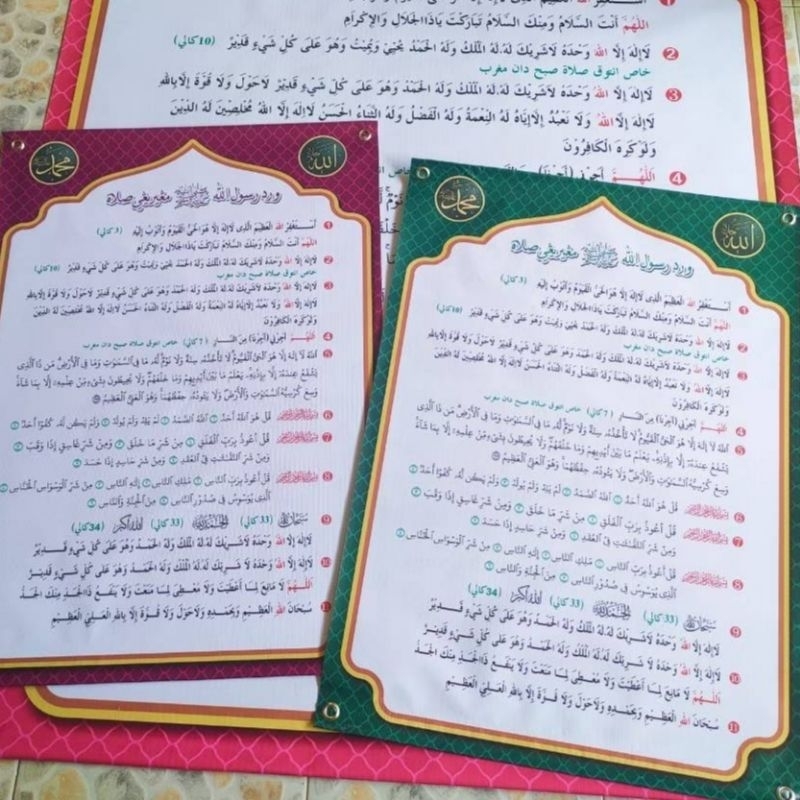 اللهم أنت السلام ومنك السلام تباركت ياذا الجلال والإكرام
❷ لآإله إلا الله وحده لاشريك له.له الملك وله الحمد يحيي ويميت وهو على كل شيء قدير (10كالي)
خاص انتوق صلاة صبح دان مغرب
❸ لآإله إلا الله وحده لاشريك له.له الملك وله الحمد وهو على كل شيء قدير لاحول ولا قوة إلابالله
لآإله إلا الله ولا نعبد إلاإياه له النعمة وله الفضل وله الثناء الحسن لاإله إلا الله مخلصين له الدين
ولوكره الكافرون
❹ اللهم أجرني
محمد
الله
ورد رسول الله ﷺ سڤرتي صلاة
❶ أستغفر الله العظيم الذى لاإله إلا هو الحى القيوم وأتوب إليه (3كالي)
اللهم أنت السلام ومنك السلام تباركت ياذا الجلال والإكرام
❷ لآإله إلا الله وحده لاشريك له.له الملك وله الحمد يحيي ويميت وهو على كل شيء قدير (10كالي)
خاص انتوق صلاة صبح دان مغرب
❸ لآإله إلا الله وحده لاشريك له.له الملك وله الحمد وهو على كل شيء قدير لاحول ولا قوة إلابالله
لآإله إلا الله ولا نعبد إلاإياه له النعمة وله الفضل وله الثناء الحسن لاإله إلا الله مخلصين له الدين
ولوكره الكافرون
❹ اللهم أجرني (أجرنا) من النار (7كالي) خاص انتوق صلاة صبح دان مغرب
❺ الله لآ إله إلا هو الحي القيوم لا تأخذه سنة ولا نوم له ما في السموت وما في الأرض من ذا الذي
يشفع عنده إلا بإذنه يعلم ما بين أيديهم وما خلفهم ولا يحيطون بشيء من علمه إلا بما شآء
وسع كرسيه السموت والأرض ولا يئوده حفظهما وهو العلي العظيم
❻ بسم الله الرحمن الرحيم قل هو الله أحد الله الصمد لم يلد ولم يولد ولم يكن له كفوا أحد
❼ بسم الله الرحمن الرحيم قل أعوذ برب الفلق من شر ما خلق ومن شر غاسق إذا وقب
ومن شر النفثت في العقد ومن شر حاسد إذا حسد
❽ بسم الله الرحمن الرحيم قل أعوذ برب الناس ملك الناس إله الناس من شر الوسواس الخناس
الذي يوسوس في صدور الناس من الجنة والناس
❾ سبحان الله (33كالي) الحمد لله (33كالي) الله أكبر (34كالي)
لآإله إلا الله وحده لاشريك له.له الملك وله الحمد وهو على كل شيء قدير
❿ لآإله إلا الله وحده لاشريك له.له الملك وله الحمد وهو على كل شيء قدير
اللهم لا مانع لما أعطيت ولا معطى لما منعت ولا ينفع ذاالجد منك الجد
⓫ سبحان الله العظيم وبحمده ولاحول ولا قوة إلا بالله العلي العظيم
محمد
الله
ورد رسول الله ﷺ سڤرتي صلاة
❶ أستغفر الله العظيم الذى لاإله إلا هو الحى القيوم وأتوب إليه (3كالي)
اللهم أنت السلام ومنك السلام تباركت ياذا الجلال والإكرام
❷ لآإله إلا الله وحده لاشريك له.له الملك وله الحمد يحيي ويميت وهو على كل شيء قدير (10كالي)
خاص انتوق صلاة صبح دان مغرب
❸ لآإله إلا الله وحده لاشريك له.له الملك وله الحمد وهو على كل شيء قدير لاحول ولا قوة إلابالله
لآإله إلا الله ولا نعبد إلاإياه له النعمة وله الفضل وله الثناء الحسن لاإله إلا الله مخلصين له الدين
ولوكره الكافرون
❹ اللهم أجرني (أجرنا) من النار (7كالي) خاص انتوق صلاة صبح دان مغرب
❺ الله لآ إله إلا هو الحي القيوم لا تأخذه سنة ولا نوم له ما في السموت وما في الأرض من ذا الذي
يشفع عنده إلا بإذنه يعلم ما بين أيديهم وما خلفهم ولا يحيطون بشيء من علمه إلا بما شآء
وسع كرسيه السموت والأرض ولا يئوده حفظهما وهو العلي العظيم
❻ بسم الله الرحمن الرحيم قل هو الله أحد الله الصمد لم يلد ولم يولد ولم يكن له كفوا أحد
❼ بسم الله الرحمن الرحيم قل أعوذ برب الفلق من شر ما خلق ومن شر غاسق إذا وقب
ومن شر النفثت في العقد ومن شر حاسد إذا حسد
❽ بسم الله الرحمن الرحيم قل أعوذ برب الناس ملك الناس إله الناس من شر الوسواس الخناس
الذي يوسوس في صدور الناس من الجنة والناس
❾ سبحان الله (33كالي) الحمد لله (33كالي) الله أكبر (34كالي)
لآإله إلا الله وحده لاشريك له.له الملك وله الحمد وهو على كل شيء قدير
❿ لآإله إلا الله وحده لا شريك له.له الملك وله الحمد وهو على كل شيء قدير
اللهم لا مانع لما أعطيت ولا معطى لما منعت ولا ينفع ذاالجد منك الجد
⓫ سبحان الله العظيم وبحمده ولاحول ولا قوة إلا بالله العلي العظيم